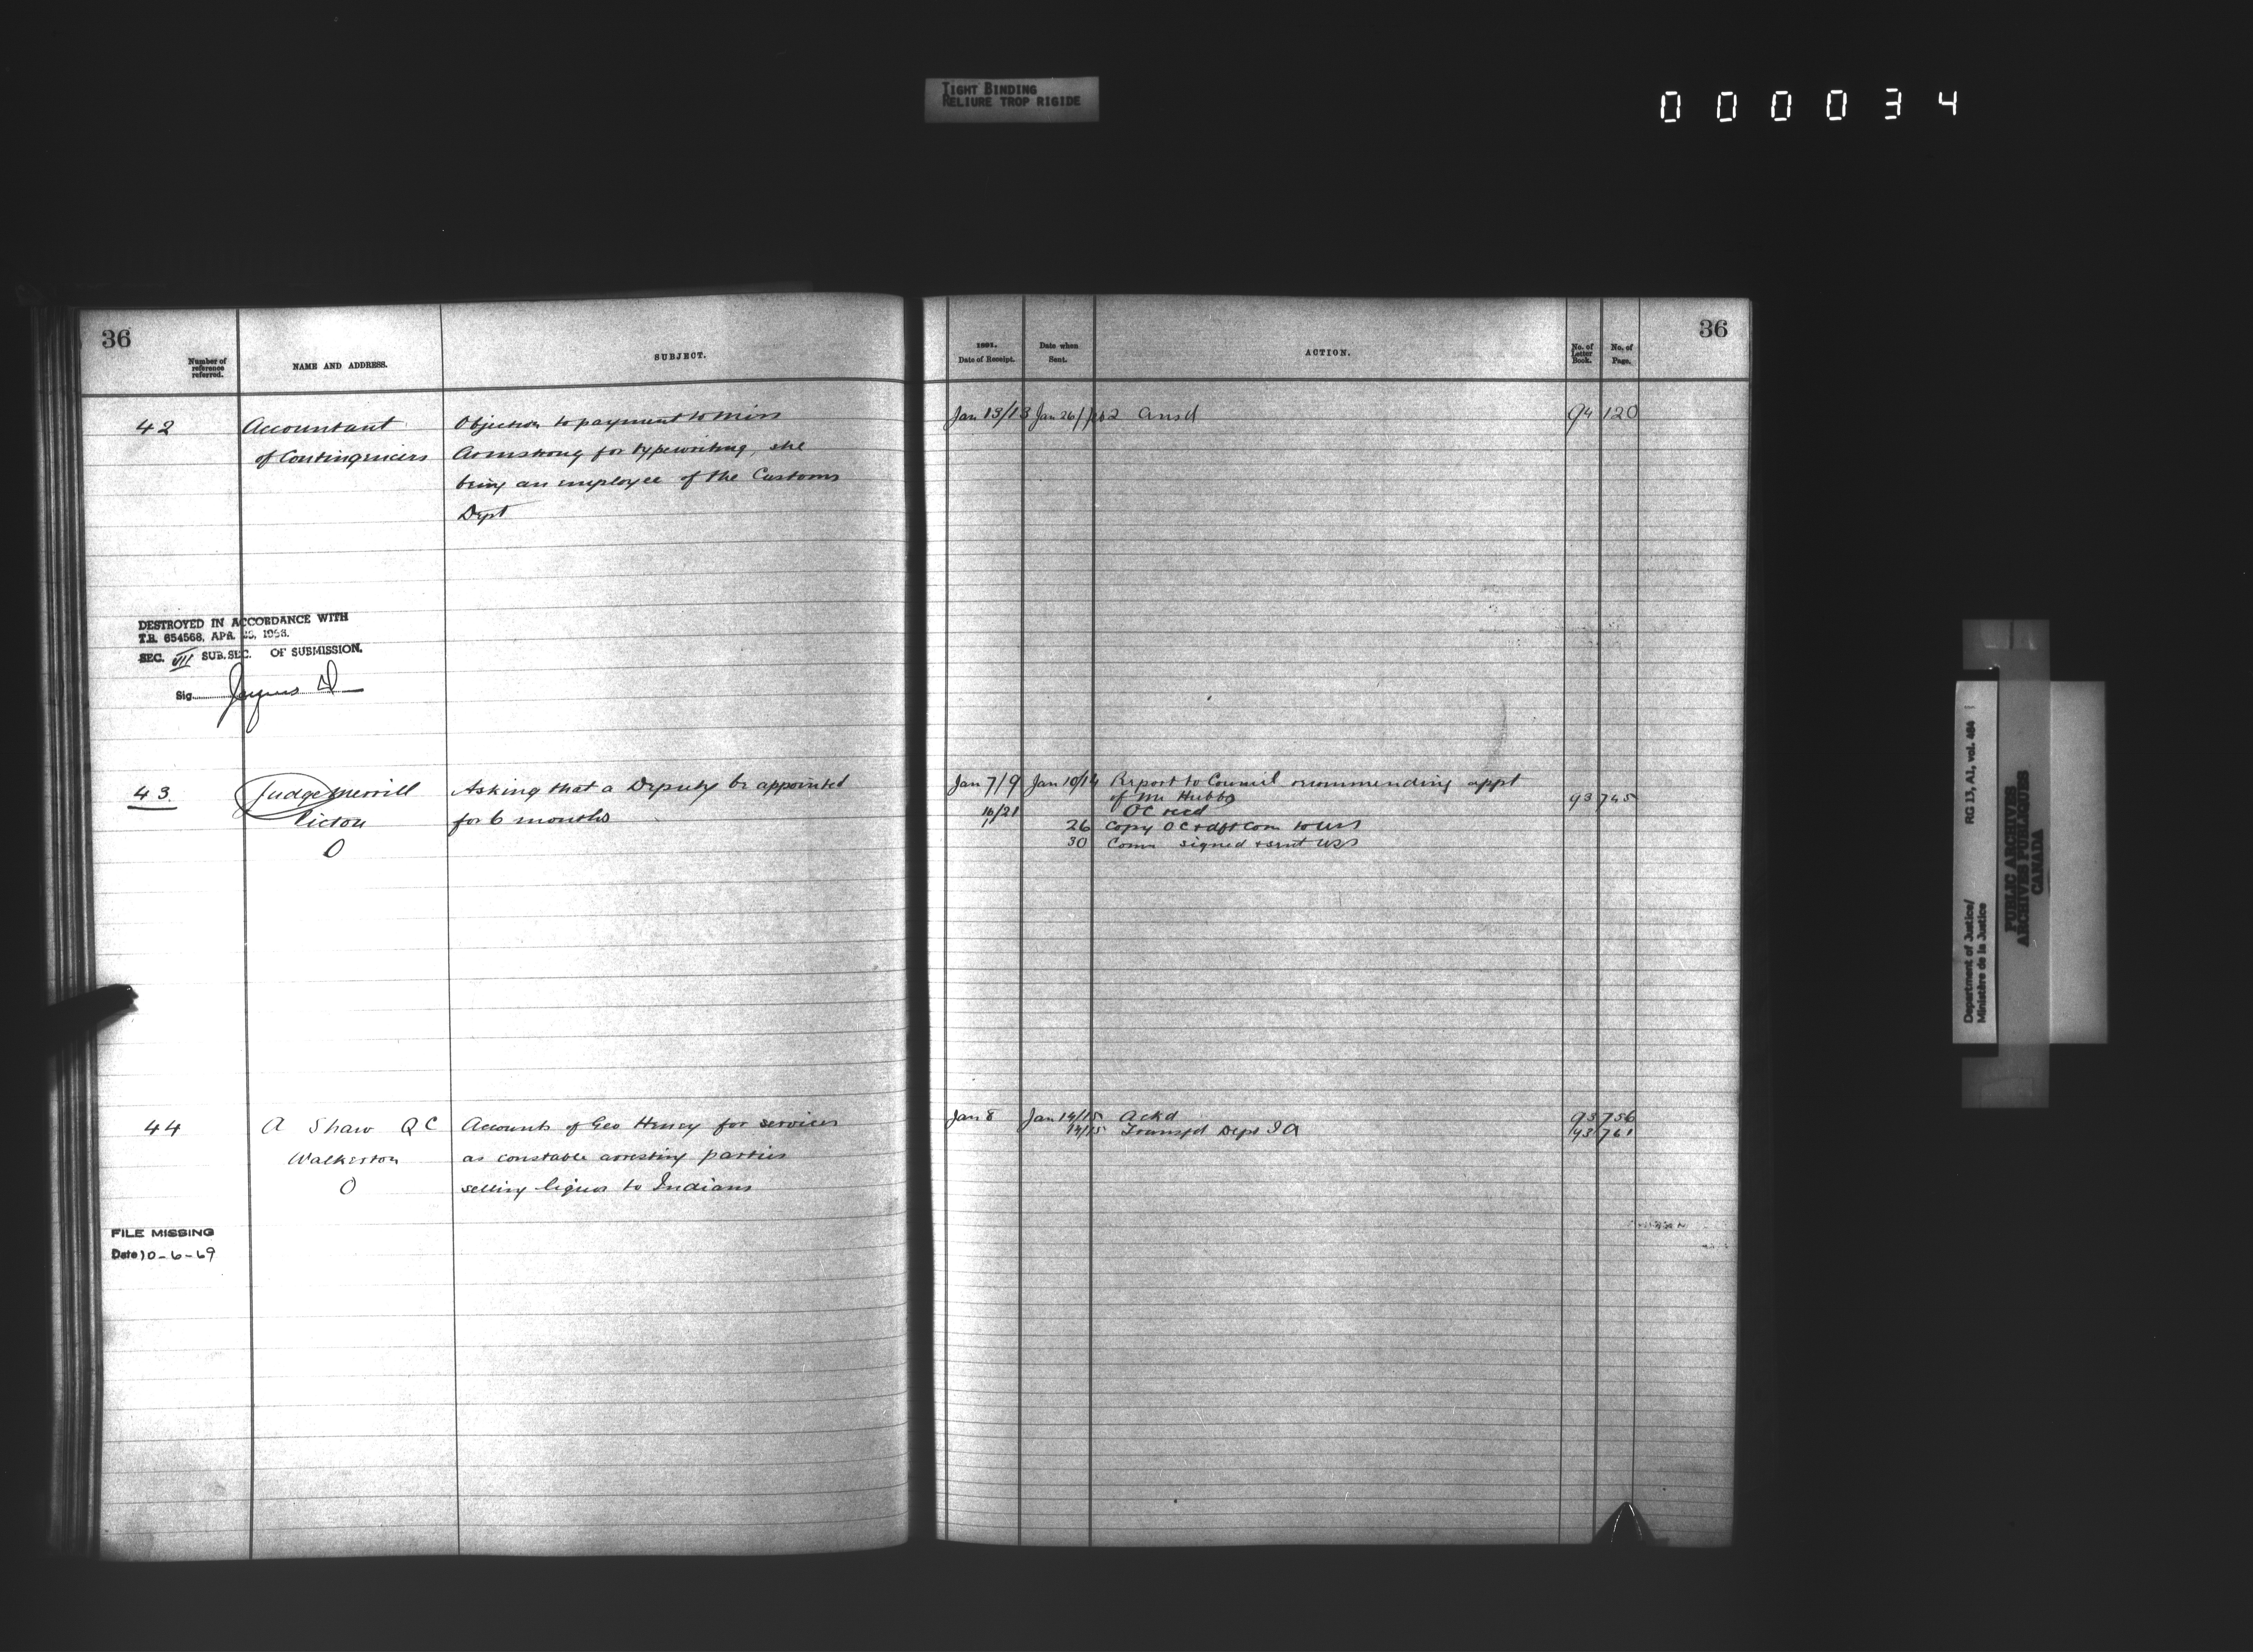 TIGHT BINDING
RELIURE TROP RIGIDE
000034
36
Number of
reference
referred.
NAME AND ADDRESS.
SUBJECT.
42
Accountant
of Contingencies
Objection to payment to Miss
Armstrong for typewriting, she
being an employee of the Customs
Dept
DESTROYED IN ACCORDANCE WITH
T.B. 654568, APR.
SEC. VII SUB.SEC. OF SUBMISSION.
Sig.
43.
Judge Merrill
Picton
O
Asking that a Deputy be appointed
for 6 months
44
A Shaw QC
Walkerton
O
Accounts of Geo Henry for services
as constable arresting parties
selling liquor to Indians
FILE MISSING
Date 10-6-69
36
1891.
Date of Receipt.
Date when
Sent.
ACTION.
No. of
Letter
Book.
No. of
Page.
Jan 13/13 Jan 26/ ansd 94 120
Jan 7/9 Jan 10/14 Report to Council recommending appt
of Mr Hubbs 93 745
16/21 OC recd
26 Copy OC & dft Com to USS
30 Comn signed & sent USS
Jan 8 Jan 14/15 Ackd 93 756
14/15 Transfd Dept I A 93 761
Department of Justice/
Ministère de la Justice
RG 13, A1, vol. 484
PUBLIC ARCHIVES
ARCHIVES PUBLIQUES
CANADA